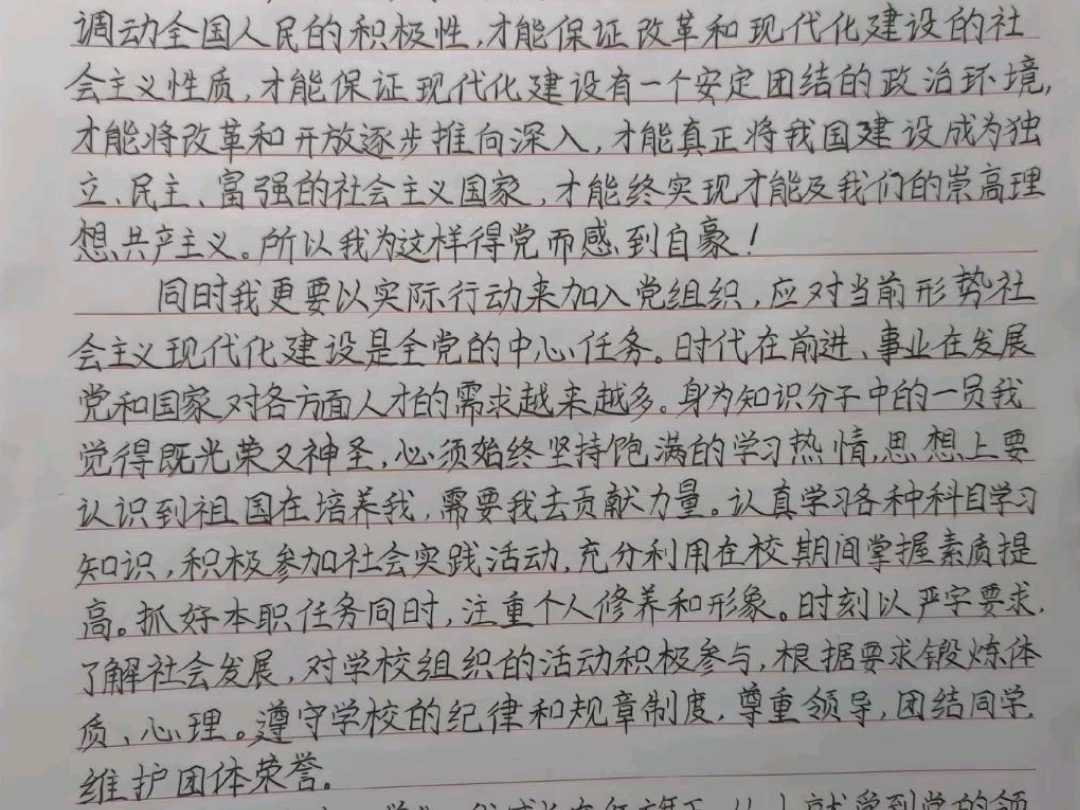 调动全国人民的积极性,才能保证改革和现代化建设的社
会主义性质,才能保证现代化建设有一个安定团结的政治环境,
才能将改革和开放逐步推向深入,才能真正将我国建设成为独
立、民主、富强的社会主义国家,才能终实现才能及我们的崇高理
想共产主义。所以我为这样得党而感到自豪!
同时我更要以实际行动来加入党组织,应对当前形势社
会主义现代化建设是全党的中心任务。时代在前进、事业在发展
党和国家对各方面人才的需求越来越多。身为知识分子中的一员我
觉得既光荣又神圣,必须始终坚持饱满的学习热情,思想上要
认识到祖国在培养我,需要我去贡献力量。认真学习各种科目学习
知识,积极参加社会实践活动,充分利用在校期间掌握素质提
高。抓好本职任务同时,注重个人修养和形象。时刻以严字要求,
了解社会发展,对学校组织的活动积极参与,根据要求锻炼体
质、心理。遵守学校的纪律和规章制度,尊重领导,团结同学,
维护团体荣誉。